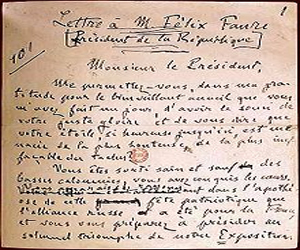 1
Lettre à M. Félix Faure
Président de la République
101
Monsieur le Président,
Me permettez-vous, dans ma gra-
titude pour le bienveillant accueil que vous
m'avez fait un jour, d'avoir le souci de
votre juste gloire et de vous dire que
votre étoile, si heureuse jusqu'ici, est me-
nacée de la plus honteuse, de la plus inef-
façable des taches?
Vous êtes sorti sain et sauf des
basses calomnies, vous avez conquis les cœurs.
dans l'apothé-
ose de cette fête patriotique que
l'alliance russe a été pour la France
et vous vous préparez à présider au
solennel triomphe de notre Exposition